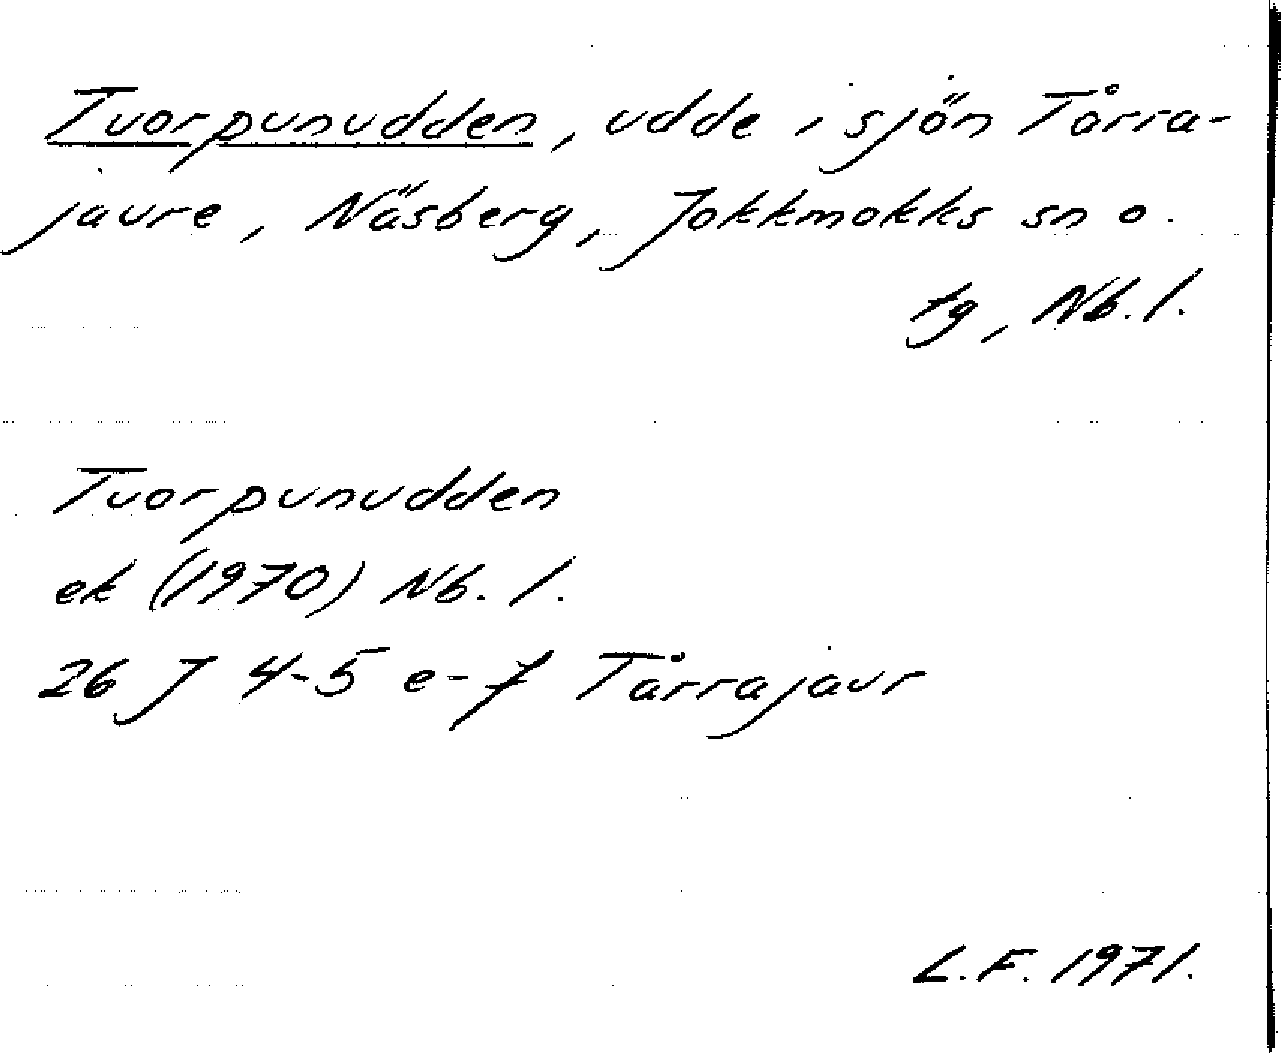 Tuorpunudden, udde i sjön Tårra-
jaure, Näsberg, Jokkmokks sn o.
tg, Nb. l.
Tuorpunudden
ek (1970) Nb. l.
26 J 4-5 e-f Tårrajaur
L.F. 1971.